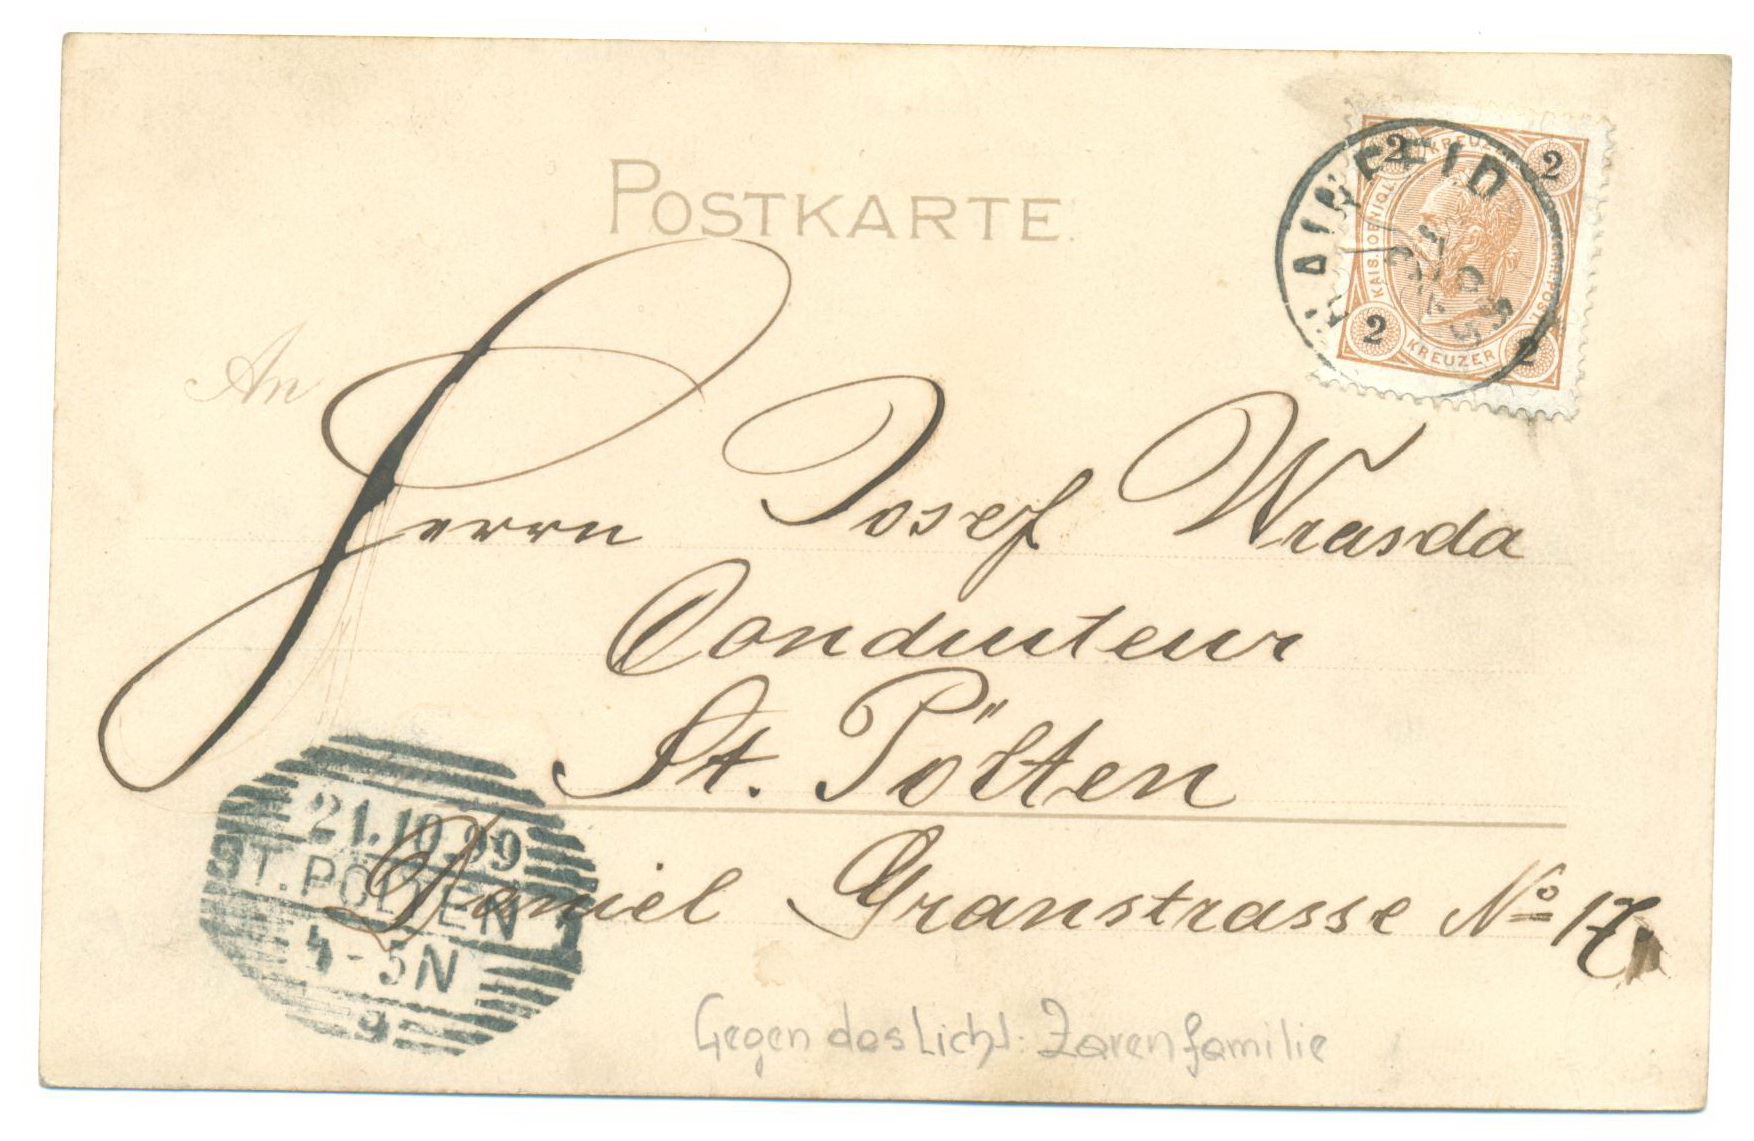 POSTKARTE
HAINFELD
2 KREUZER 2
KAIS. KOENIGL.
2 KREUZER 2
An
Herrn Josef Wrasda
Conducteur
St. Pölten
Daniel Granstrasse No 17
21.10.99
ST. PÖLTEN 1
4-5N
9
Gegen das Licht: Zarenfamilie